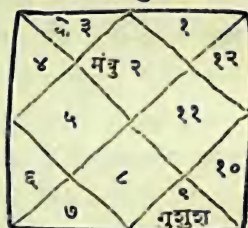 ३ १
४ मंबु २ १२
५ ११
६ ८ ९ १०
७ गुशुश